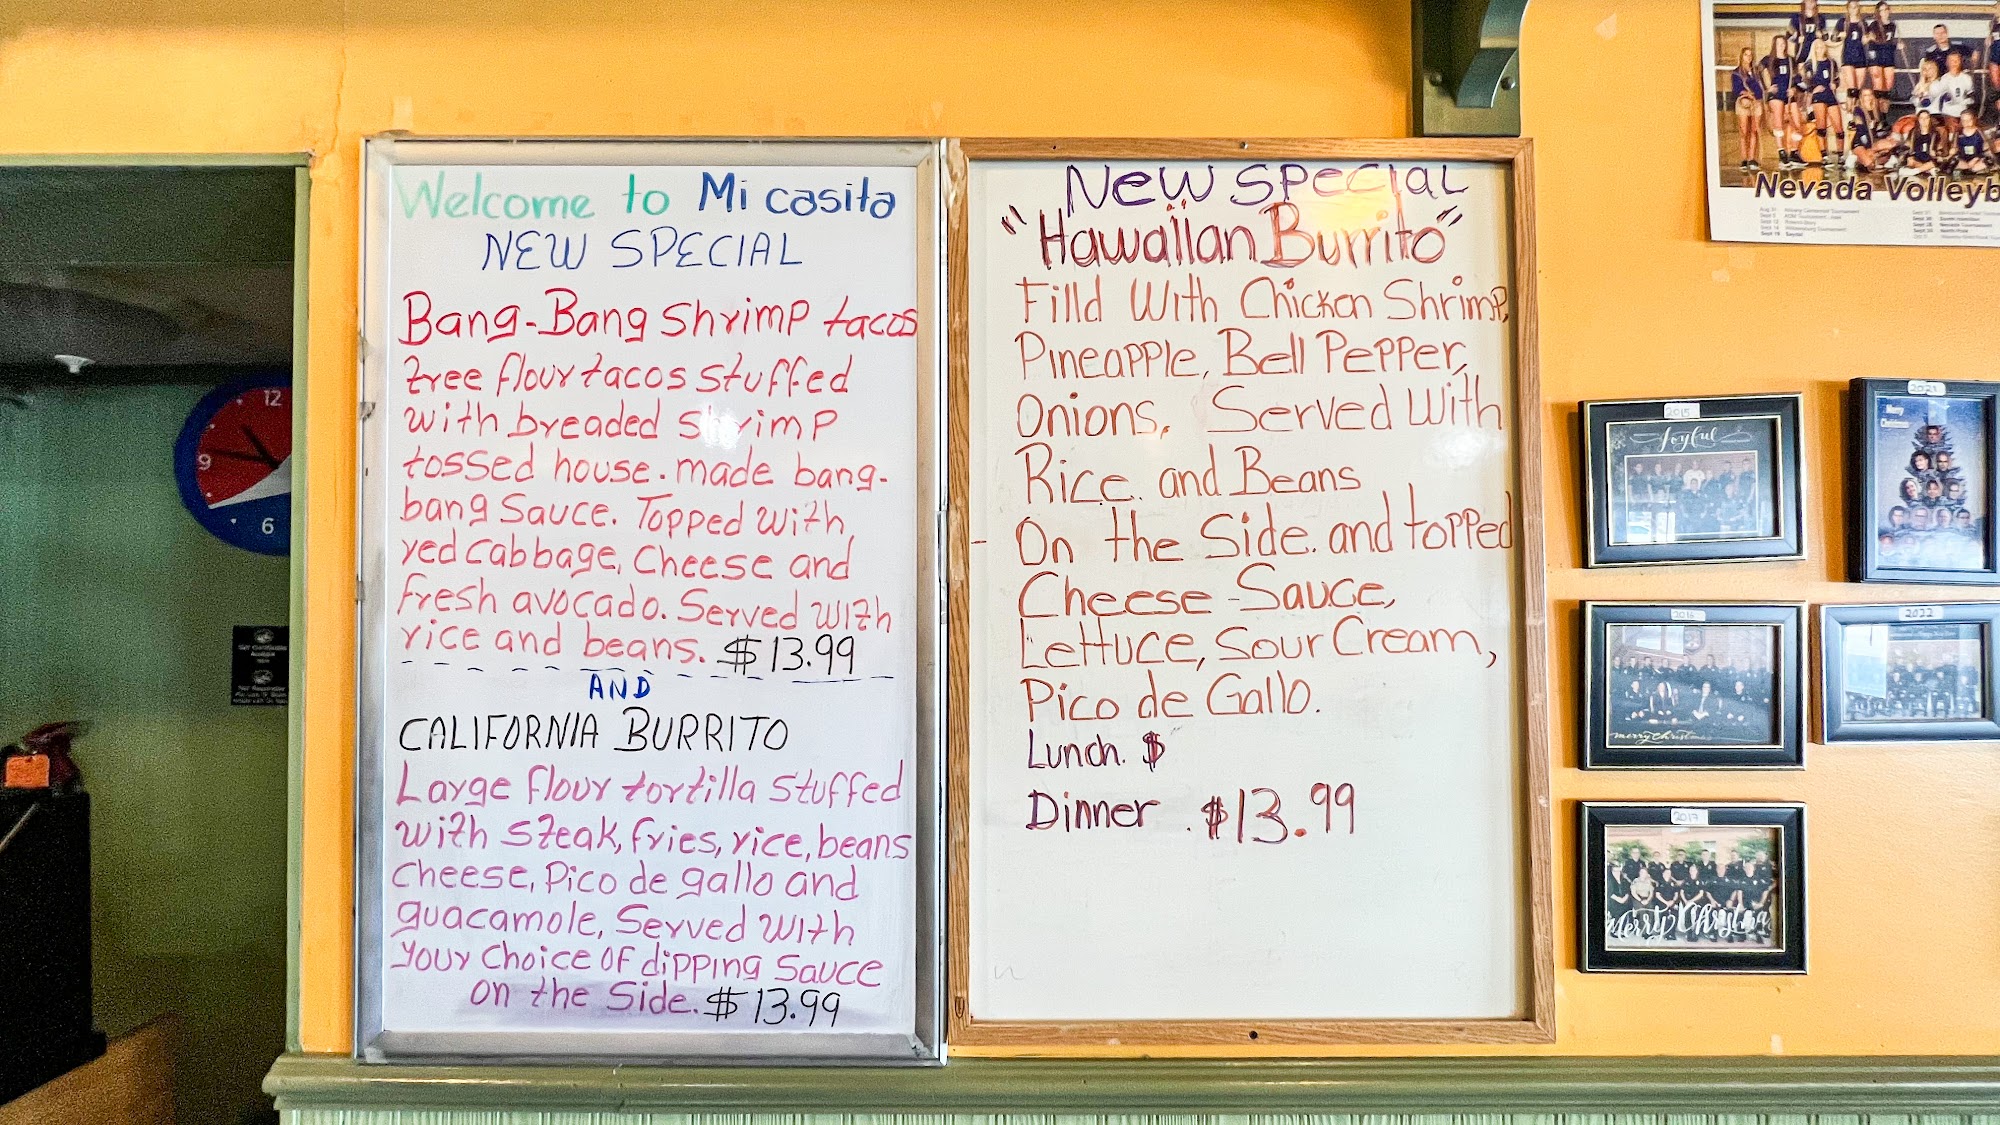 Welcome to Mi casita
NEW SPECIAL
Bang-Bang shrimp tacos
tree flour tacos stuffed
with breaded shrimp
tossed house-made bang-
bang Sauce. Topped with
red cabbage, Cheese and
fresh avocado. Served with
rice and beans. $13.99
AND
CALIFORNIA BURRITO
Large flour tortilla stuffed
with steak, fries, rice, beans
cheese, Pico de gallo and
guacamole, Served with
your choice of dipping sauce
on the Side. $13.99
New SPecial
"Hawaiian Burrito"
Filld With Chicken Shrimp,
Pineapple, Bell Pepper,
Onions, Served With
Rice. and Beans
- On the Side. and topped
Cheese-Sauce,
Lettuce, Sour Cream,
Pico de Gallo.
Lunch. $
Dinner $13.99
Nevada Volleyb
12
9
6
2015
Joyful
2021
Merry
Christmas
merry christmas
2022
2017
Merry Christma